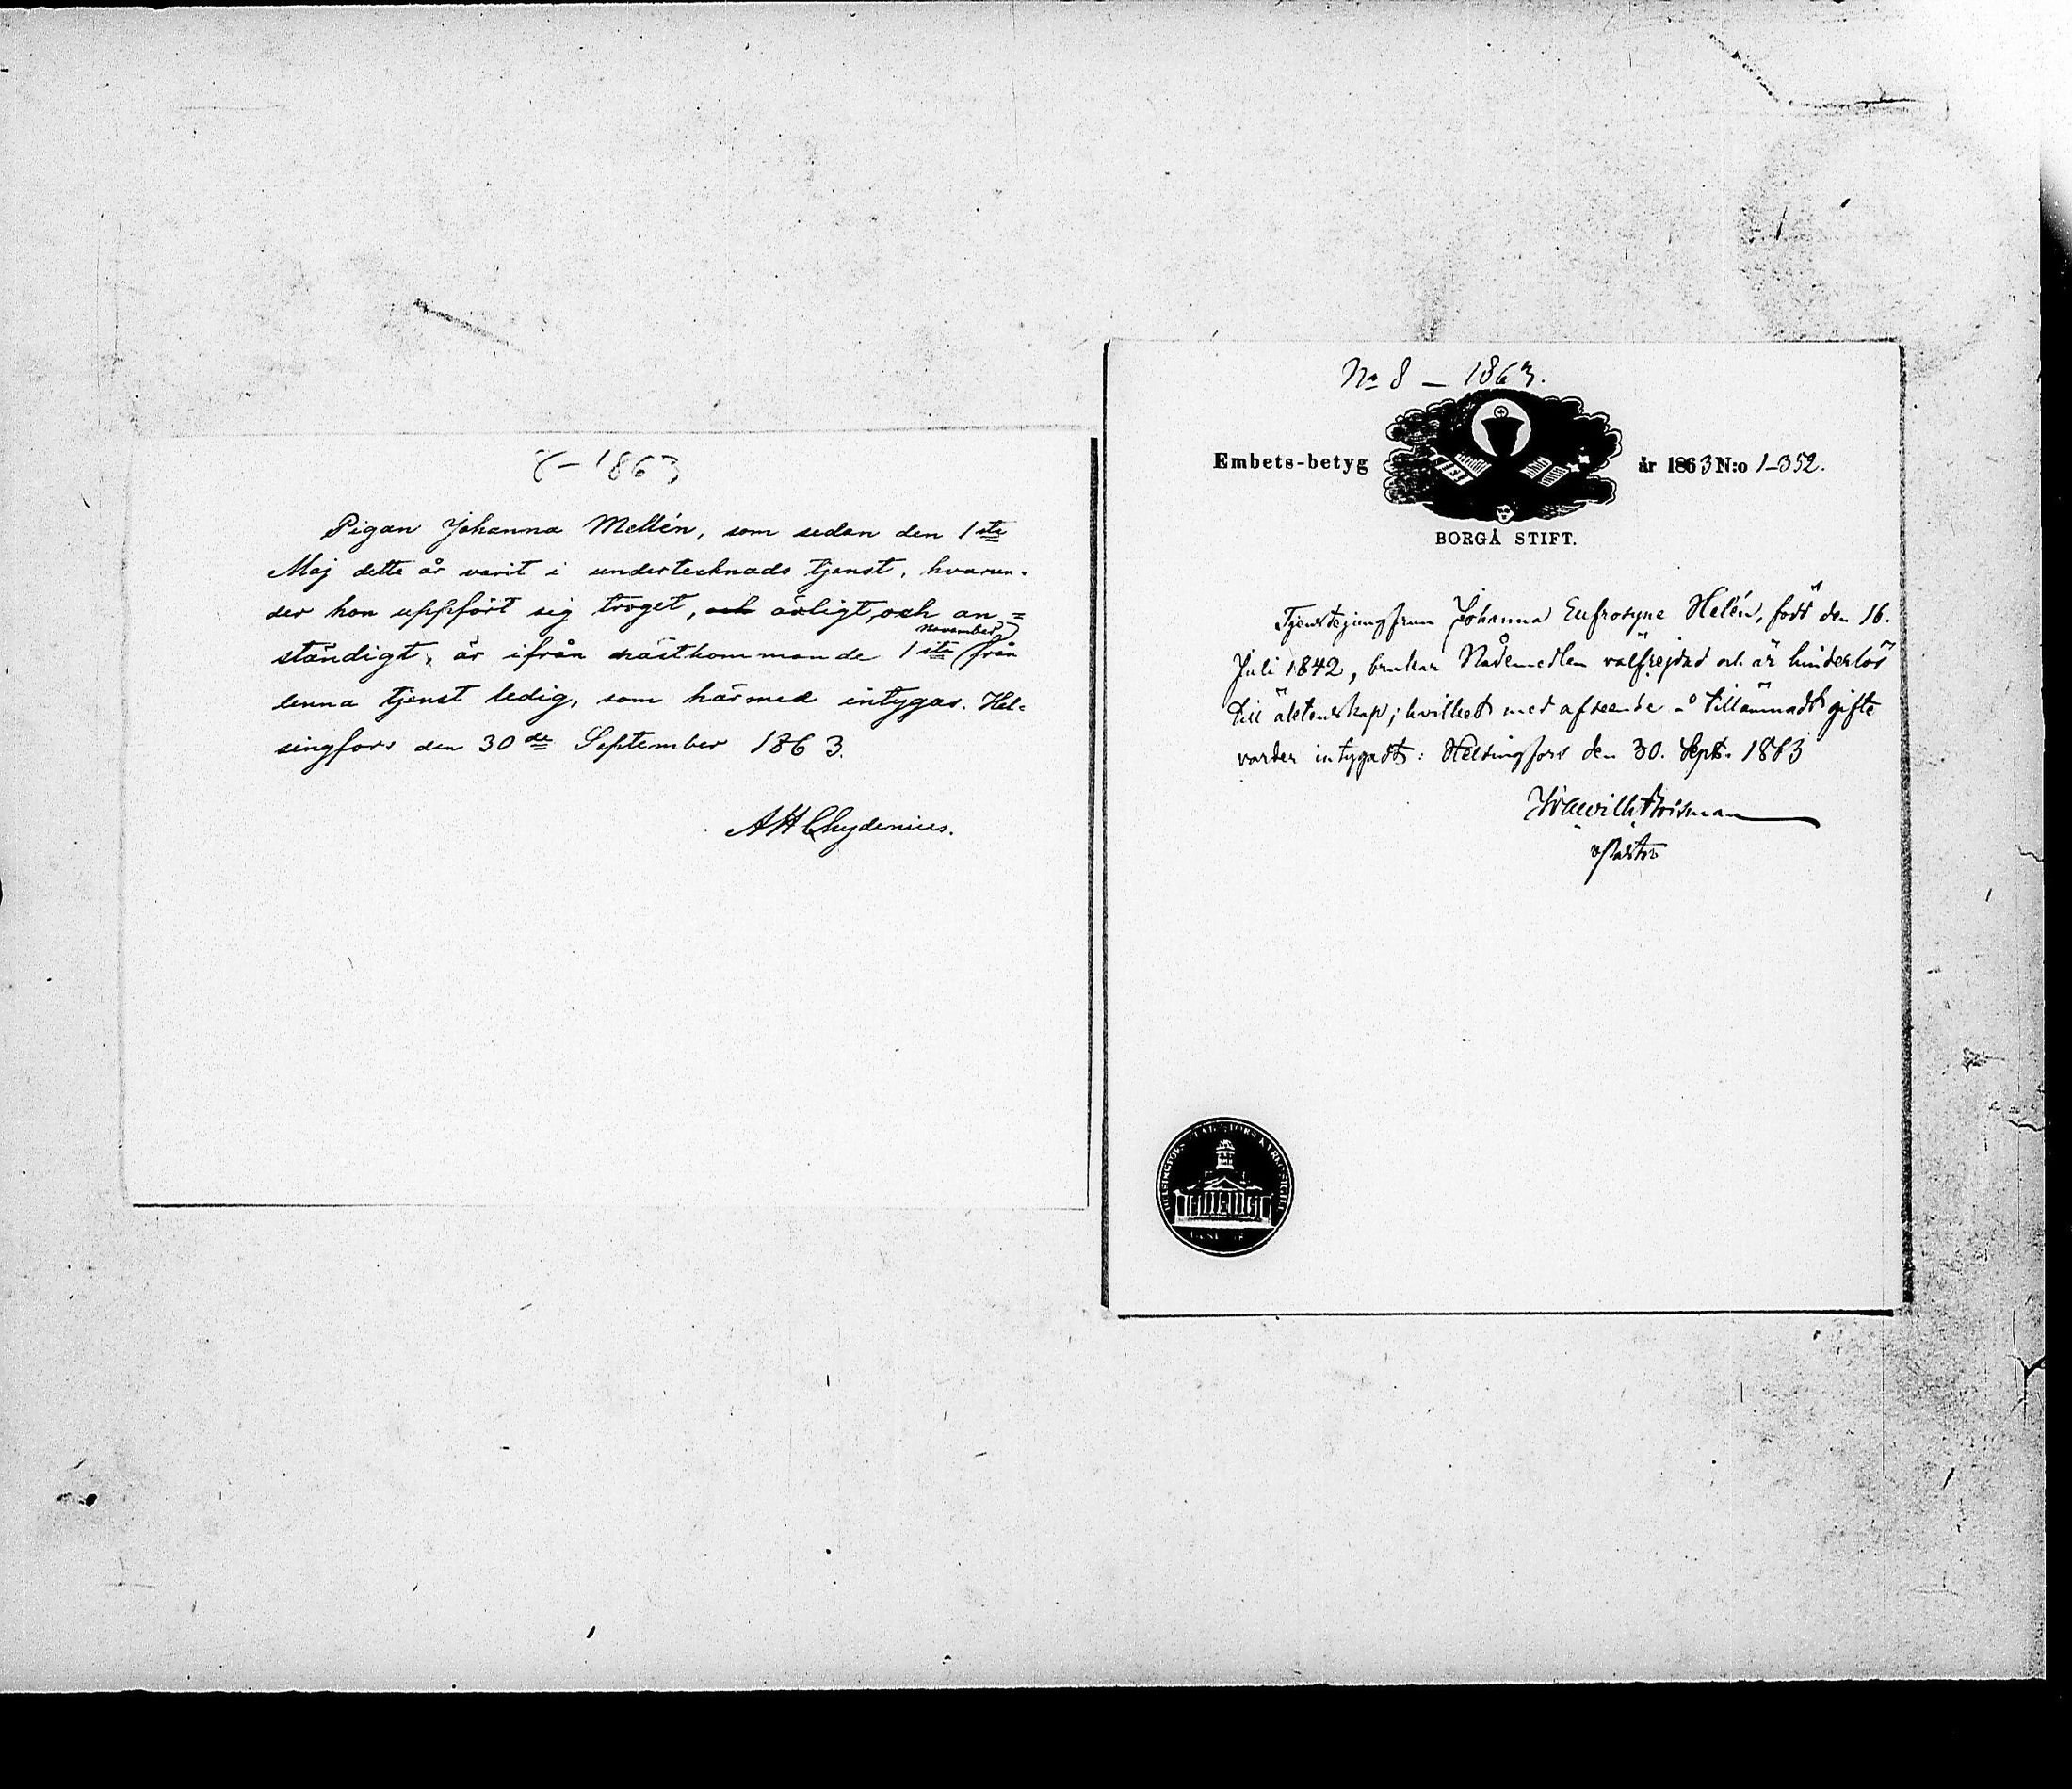 8-1863
Pigan Johanna Mellén, som sedan den 1ste
Maj detta år varit i undertecknads tjenst, hvarun-
der hon uppfört sig troget, och ärligt, och an=
ständigt, är ifrån nästkommande 1ste november från
denna tjenst ledig, som härmed intygas. Hel-
singfors den 30de September 1863.
A H Chydenius.
No 8 – 1863.
Embets-betyg år 1863 N:o 1–352.
BORGÅ STIFT.
Tjenstejungfrun Johanna Eufrosyne Helén, född den 16.
Juli 1842, brukar Nådemedlen välfrejdad och är hinderlös
till äktenskap; hvilket med afseende å tillämnadt gifte
varder intygadt: Helsingfors den 30. Sept. 1863
v Pastor